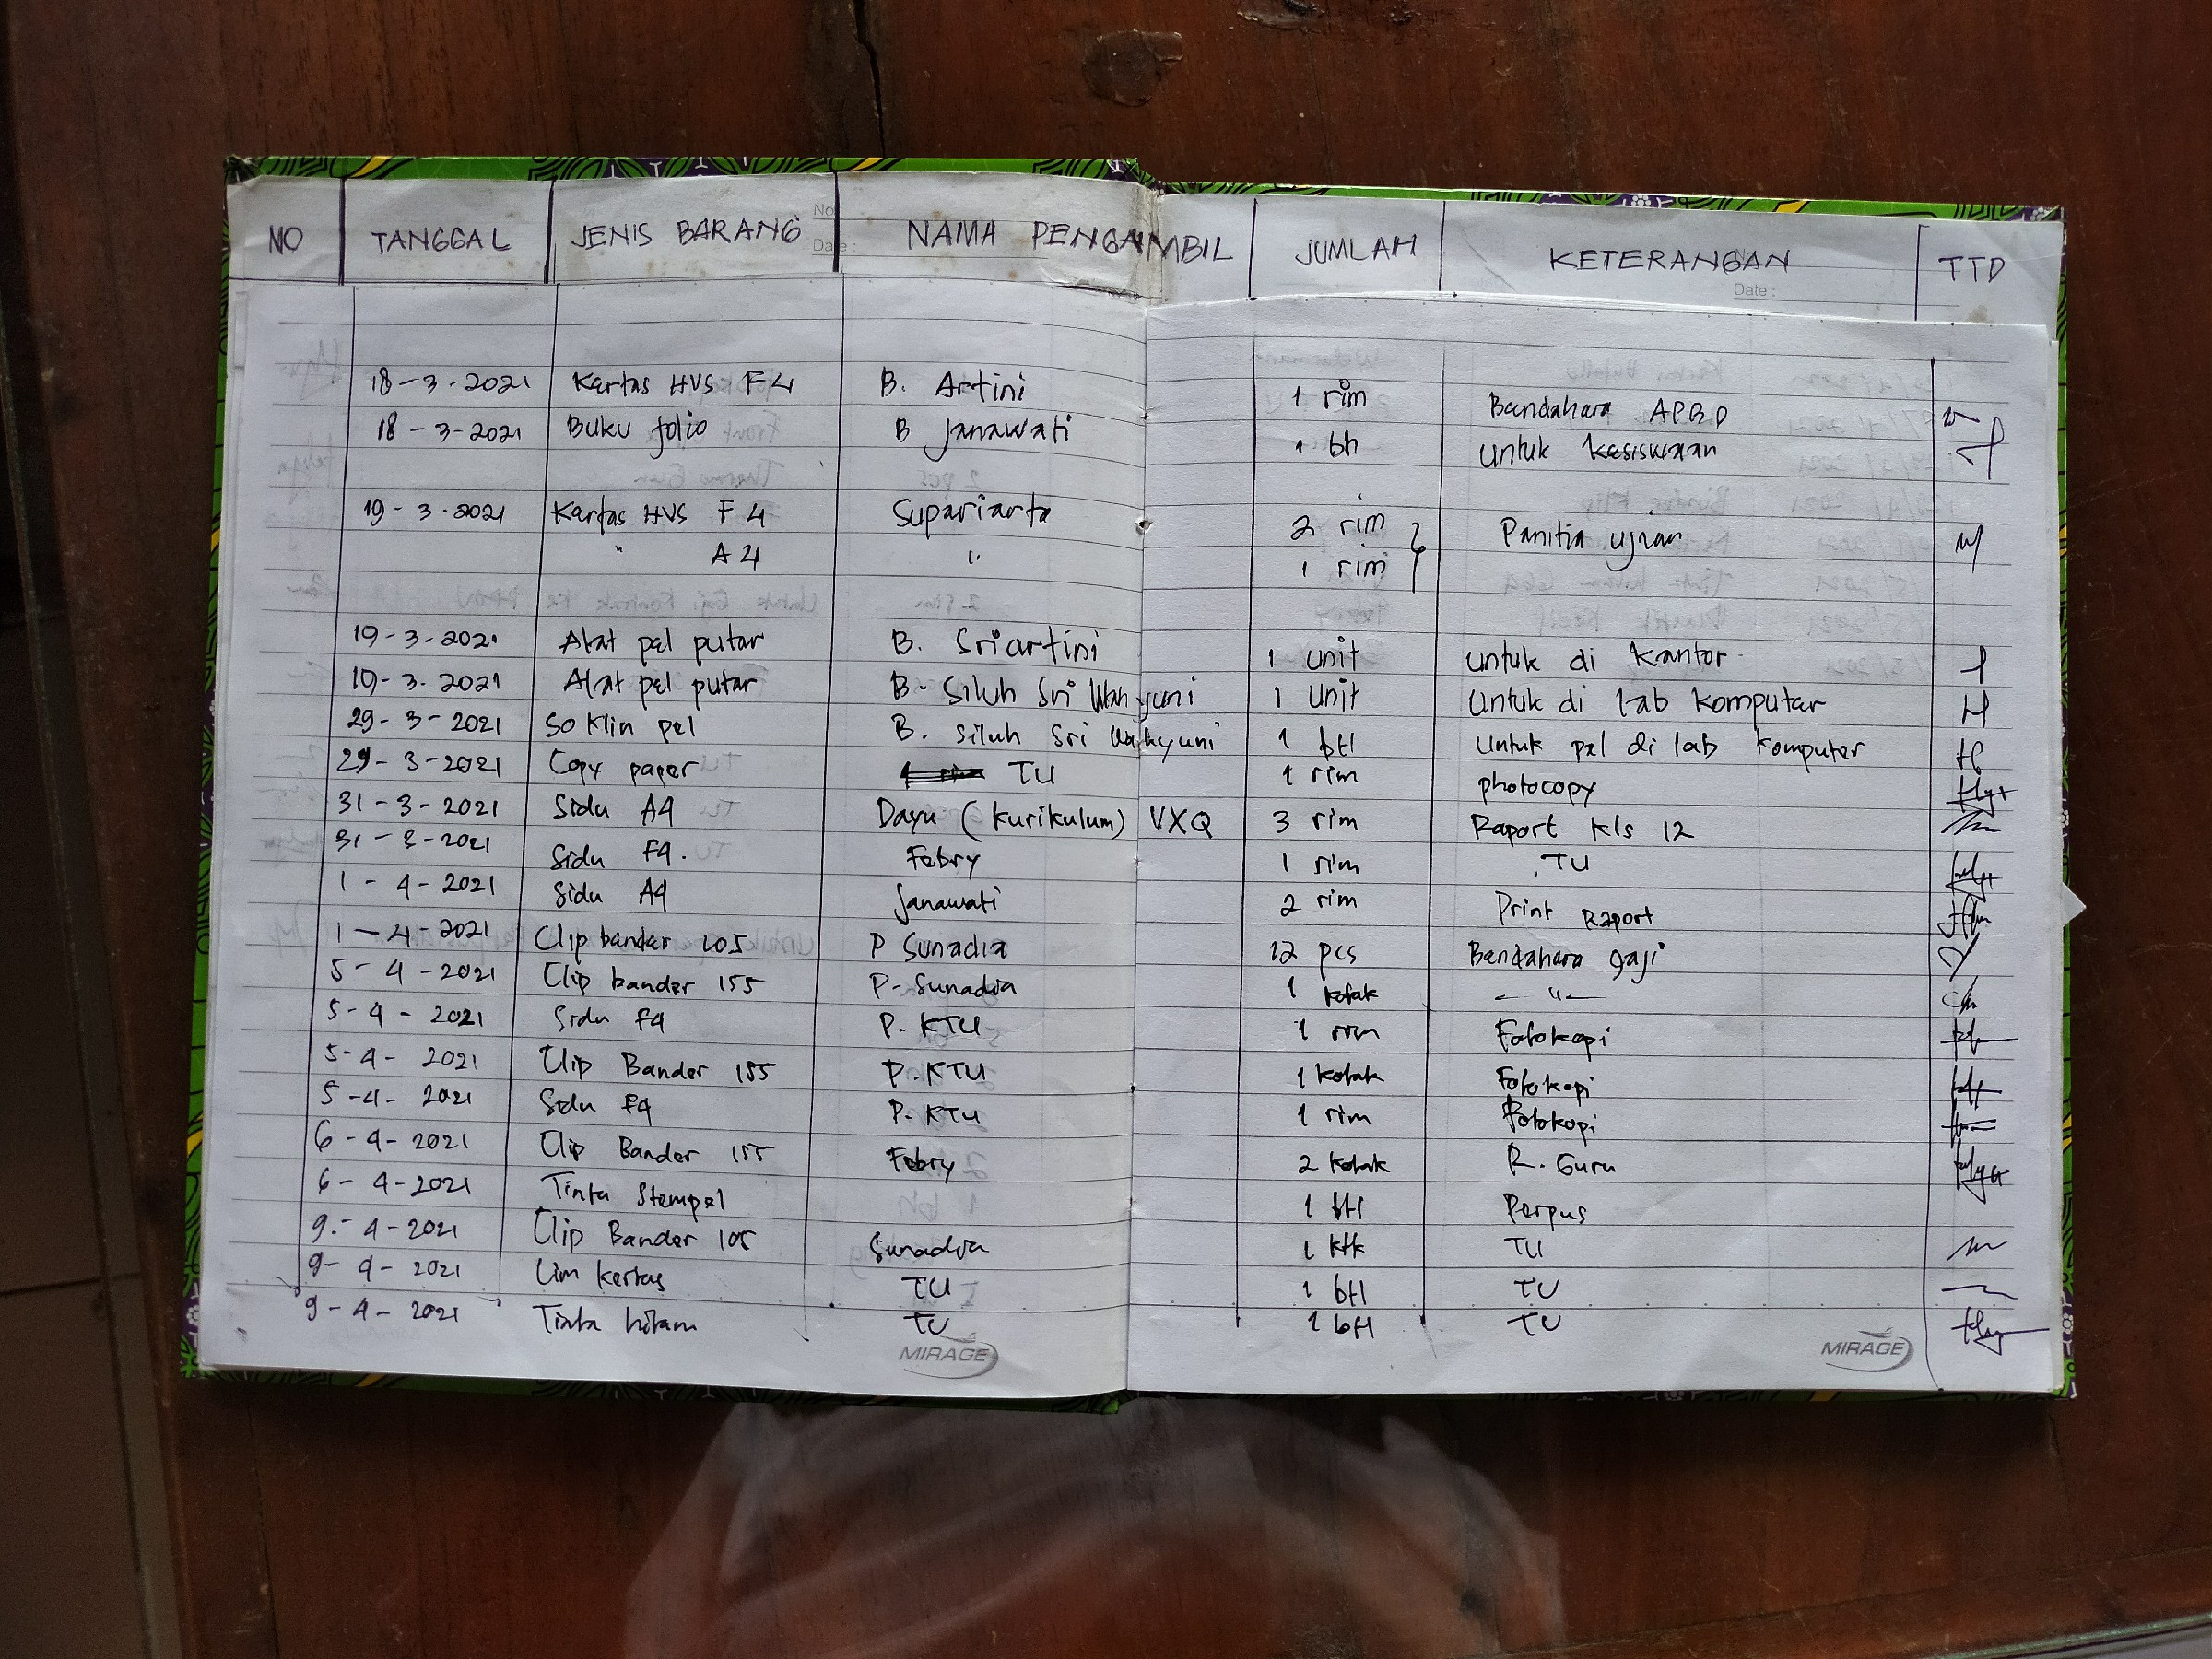 NO TANGGAL JENIS BARANG NAMA PENGAMBIL JUMLAH KETERANGAN TTD
No
Date :
Date :
18-3-2021 Kertas HVS F4 B. Artini 1 rim Bendahara APBD
18-3-2021 Buku folio B Janawati 1 bh untuk kesiswaan
19-3-2021 Kertas HVS F4 Supariarta 2 rim Panitia ujian
" A4 " 1 rim
19-3-2021 Alat pel putar B. Sriartini 1 unit untuk di kantor
19-3-2021 Alat pel putar B. Siluh Sri Wahyuni 1 Unit Untuk di lab komputer
29-3-2021 So Klin pel B. Siluh Sri Wahyuni 1 btl Untuk pel di lab komputer
29-3-2021 Copy paper TU 1 rim photocopy
31-3-2021 Sidu A4 Dayu (kurikulum) VXQ 3 rim Raport Kls 12
31-3-2021 Sidu F4. Febry 1 rim TU
1-4-2021 Sidu A4 Janawati 2 rim Print Raport
1-4-2021 Clip bander 105 P Sunadia 12 pcs Bendahara gaji
5-4-2021 Clip bander 155 P-Sunadia 1 kotak - " -
5-4-2021 Sidu F4 P. KTU 1 rim Fotokopi
5-4-2021 Clip Bander 155 P. KTU 1 kotak Fotokopi
5-4-2021 Sidu F4 P. KTU 1 rim Fotokopi
6-4-2021 Clip Bander 155 Febry 2 kotak R. Guru
6-4-2021 Tinta Stempel 1 btl Perpus
9-4-2021 Clip Bander 105 Sunadia 1 ktk TU
9-4-2021 Lim kertas TU 1 btl TU
9-4-2021 Tinta hitam TU 1 btl TU
MIRAGE MIRAGE